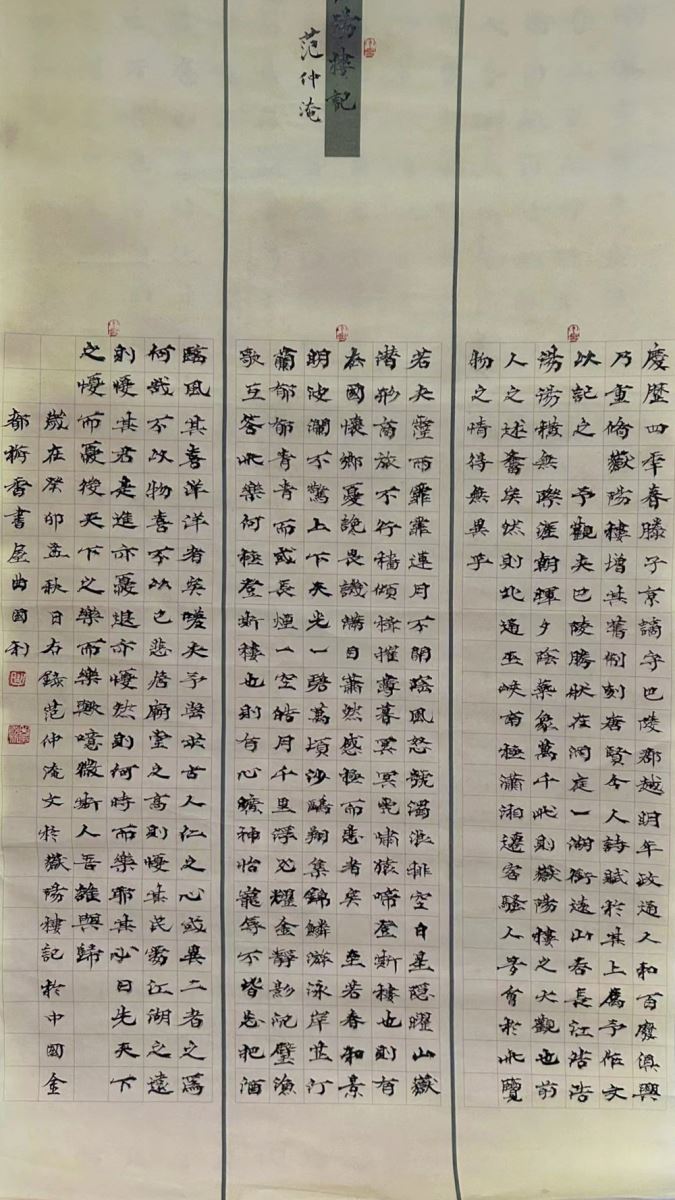 陽樓記
范仲淹
慶歷四年春滕子京謫守巴陵郡越明年政通人和百廢俱興
乃重脩嶽陽樓增其舊制刻唐賢今人詩賦於其上屬予作文
以記之 予觀夫巴陵勝狀在洞庭一湖銜遠山吞長江浩浩
湯湯橫無際涯朝暉夕陰氣象萬千此則嶽陽樓之大觀也前
人之述備矣然則北通巫峽南極瀟湘遷客騷人多會於此覽
物之情得無異乎
若夫霪雨霏霏連月不開陰風怒號濁浪排空日星隱曜山嶽
潛形商旅不行檣傾楫摧薄暮冥冥虎嘯猿啼登斯樓也則有
去國懷鄉憂讒畏譏滿目蕭然感極而悲者矣 至若春和景
明波瀾不驚上下天光一碧萬頃沙鷗翔集錦鱗游泳岸芷汀
蘭郁郁青青而或長煙一空皓月千里浮光耀金靜影沉璧漁
歌互答此樂何極登斯樓也則有心曠神怡寵辱不皆忘把酒
臨風其喜洋洋者矣嗟夫予嘗求古人仁之心或異二者之為
何哉不以物喜不以己悲居廟堂之高則憂其民處江湖之遠
則憂其君是進亦憂退亦憂然則何時而樂耶其必曰先天下
之憂而憂後天下之樂而樂歟噫微斯人吾誰與歸
歲在癸卯孟秋日右錄范仲淹文於嶽陽樓記於中國金
都栴香書屋曲國利